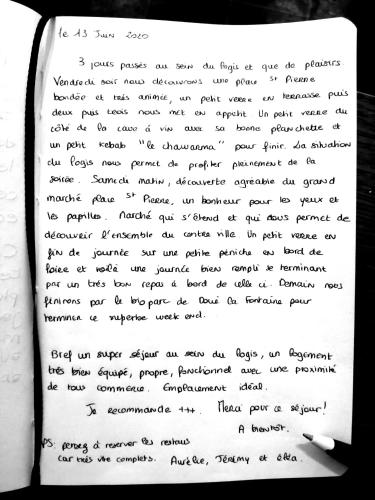 le 13 Juin 2020
3 jours passés au sein du logis et que de plaisirs
Vendredi soir nous découvrons une place St Pierre
bondée et très animée, un petit verre en terrasse puis
deux puis trois nous met en appétit. Un petit verre du
côté de la cave à vin avec sa bonne planchette et
un petit kebab "le chawarma" pour finir. La situation
du logis nous permet de profiter pleinement de la
soirée. Samedi matin, découverte agréable du grand
marché place St Pierre, un bonheur pour les yeux et
les papilles. Marché qui s'étend et qui nous permet de
découvrir l'ensemble du centre ville. Un petit verre en
fin de journée sur une petite péniche en bord de
Loire et voilà une journée bien rempli se terminant
par un très bon repas à bord de celle ci. Demain nous
finirons par le bio parc de Doué la Fontaine pour
terminer ce superbe week end.
Bref un super séjour au sein du logis, un logement
très bien équipé, propre, fonctionnel avec une proximité
de tous commerce. Emplacement idéal.
Je recommande +++. Merci pour ce séjour!
A bientôt.
PS: pensez à réserver les restaus
car très vite complets. Aurélie, Jérémy et